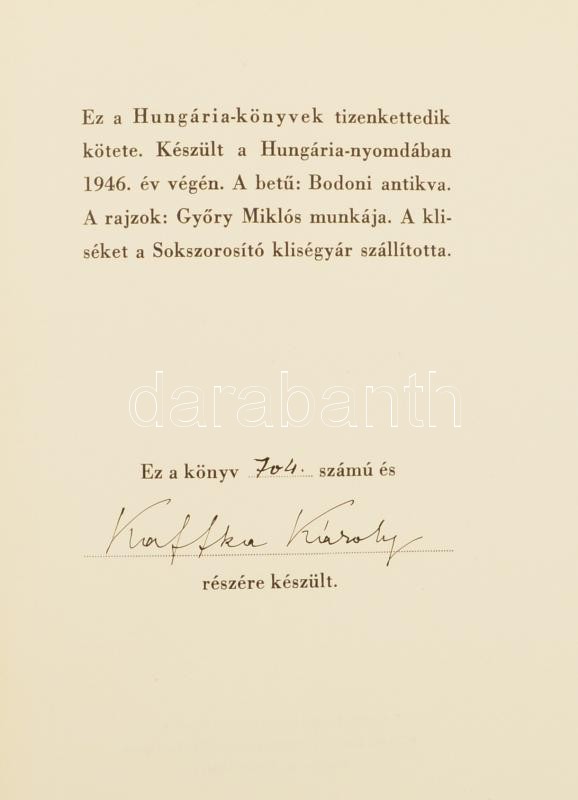 Ez a Hungária-könyvek tizenkettedik
kötete. Készült a Hungária-nyomdában
1946. év végén. A betű: Bodoni antikva.
A rajzok: Győry Miklós munkája. A kli-
séket a Sokszorosító kliségyár szállította.
darabanth
Ez a könyv 704. számú és
Kaffka Károly
részére készült.